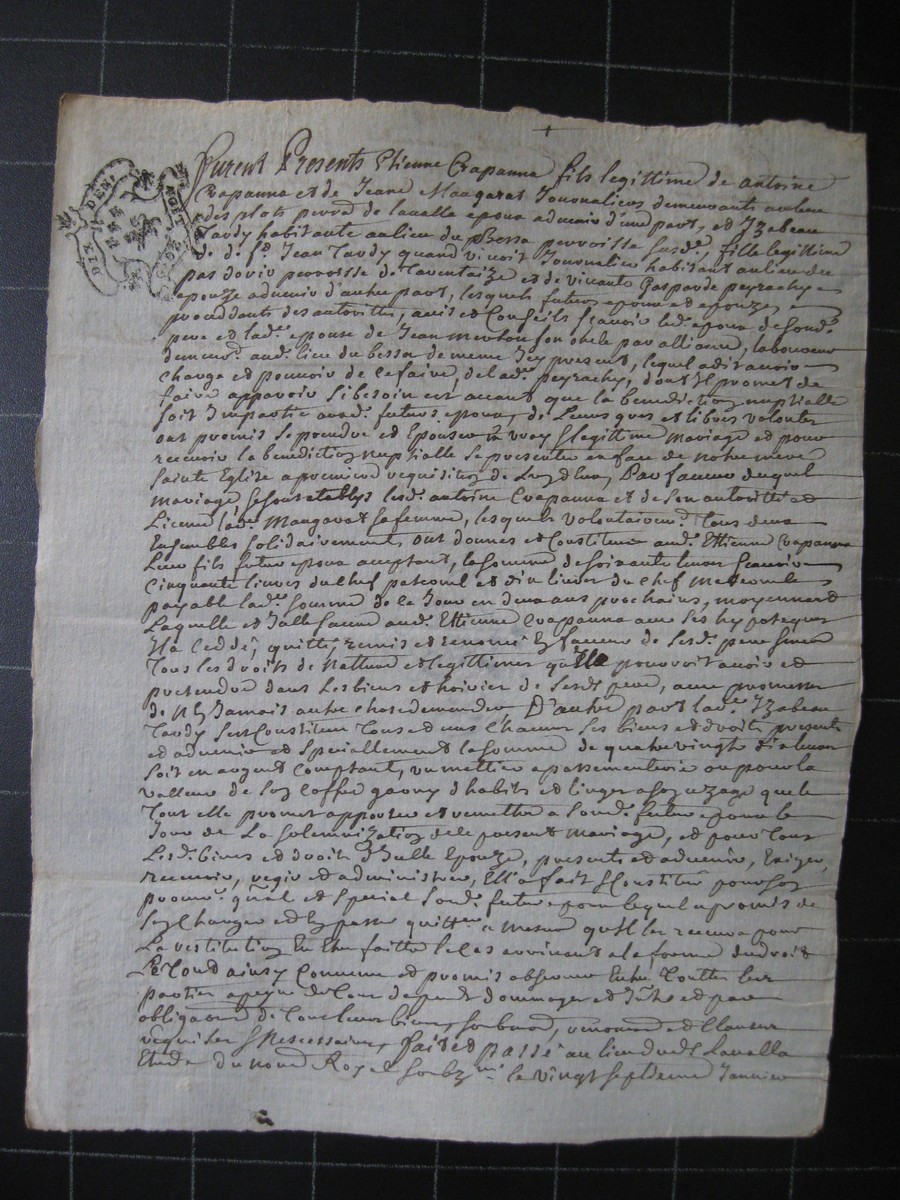 DIX DEN.
furent Presents Etienne Crapanna fils legittime de antoine
Crapanna et de Jeane Maugarat Journaliers demeurants au lieu
des plots perr. de lavalla epoux advenir d'une part, et Izabeau
Tardy habitante au lieu du Bessa perroisse susd.e, fille legittime
de d. fd. Jean Tardy quand vivoit Journalier habitant au lieu du
pas doviv perroisse de Tarentaize et de vivante Gasparde peyrachy
epouze advenir d'autre part, lesquels futurs epoux et epouze,
proceddants des autorittes, avis et Conseils sçavoir led. epoux de sond.
pere et lad.e epouse de Jean son oncle par alliance, laboureur
demeur.t aud. lieu du bessa de meme Icy present, lequel a dit avoir
charge et pouvoir de ce faire, de lad.e peyrachy, dont Il promet de
faire apparoir si besoin est avant que la benediction nuptialle
soit Impartie auxd. futurs epoux, de Leurs gres et libres volontes
ont promis se prendre et Epouser en vray & legittime mariage et pour
recevoir la benediction nuptialle se presenter en face de notre mere
sainte Eglise a premiere requisition de Lun deux, Par faveur duquel
mariage se sont etablys lesd. antoine Crapanna et de son autoritté et
Licence lad.e Maugarat sa femme, lesquels volontairem.t tous deux
Ensembles solidairement, ont donnes et Constitues aud. Ettienne Crapanna
Leur fils futur epoux acceptant, la somme de soixante livres sçavoir
cinquante livres du chef paternel et dix livres du chef Maternel
payable lad.e somme de ce Jour en deux ans prochains, moyennant
Laquelle et Icelle sauve aud. Ettienne Crapanna avec ses hypoteques
Il a ceddé, quitté, remis et renoncé En faveur de sesd. pere & mere
tous les droits de Nature et legittimes qu'Il pourroit avoir et
pretendre dans Les biens et hoiries de sesd. pere, avec promesse
de N'en Jamais autre chose demander D'autre part lad.e Izabeau
Tardy se Constitue tous et uns Chacuns ses biens et droits presents
et advenir et speciallement la somme de quatre vingt dix livres
soit en argent Comptant, un mettier a passementerie ou pour la
valleur de son Coffre garny d'habits et linges a son uzage que le
tout elle promet apporter et remettre a sond. futur epoux le
Jour de La solemnization de le present Mariage, et pour tous
Lesd. biens et droits d'Icelle Epouze, presents et advenir, Exiger,
recevoir, regir et administrer, Elle a fait & Constitué pour son
procur.r g.nal et special sond. futur epoux lequel a promis de
s'en Charger et En passer quittan.e a mesure qu'Il les recevra pour
La restitution En Etre faitte le Cas arrivant a la forme du droit
Le tout ainsy Convenu et promis observer Entre touttes les
parties a peyne de tous depends dommages et Int.ts et par
obligations de tous leurs biens, soumis.on, renonc.on et Clauses
requises & Necessaires, fait et passé au lieu dud. Lavalla
Etude du not.e Royal soubz.né le vingt septieme Janvier